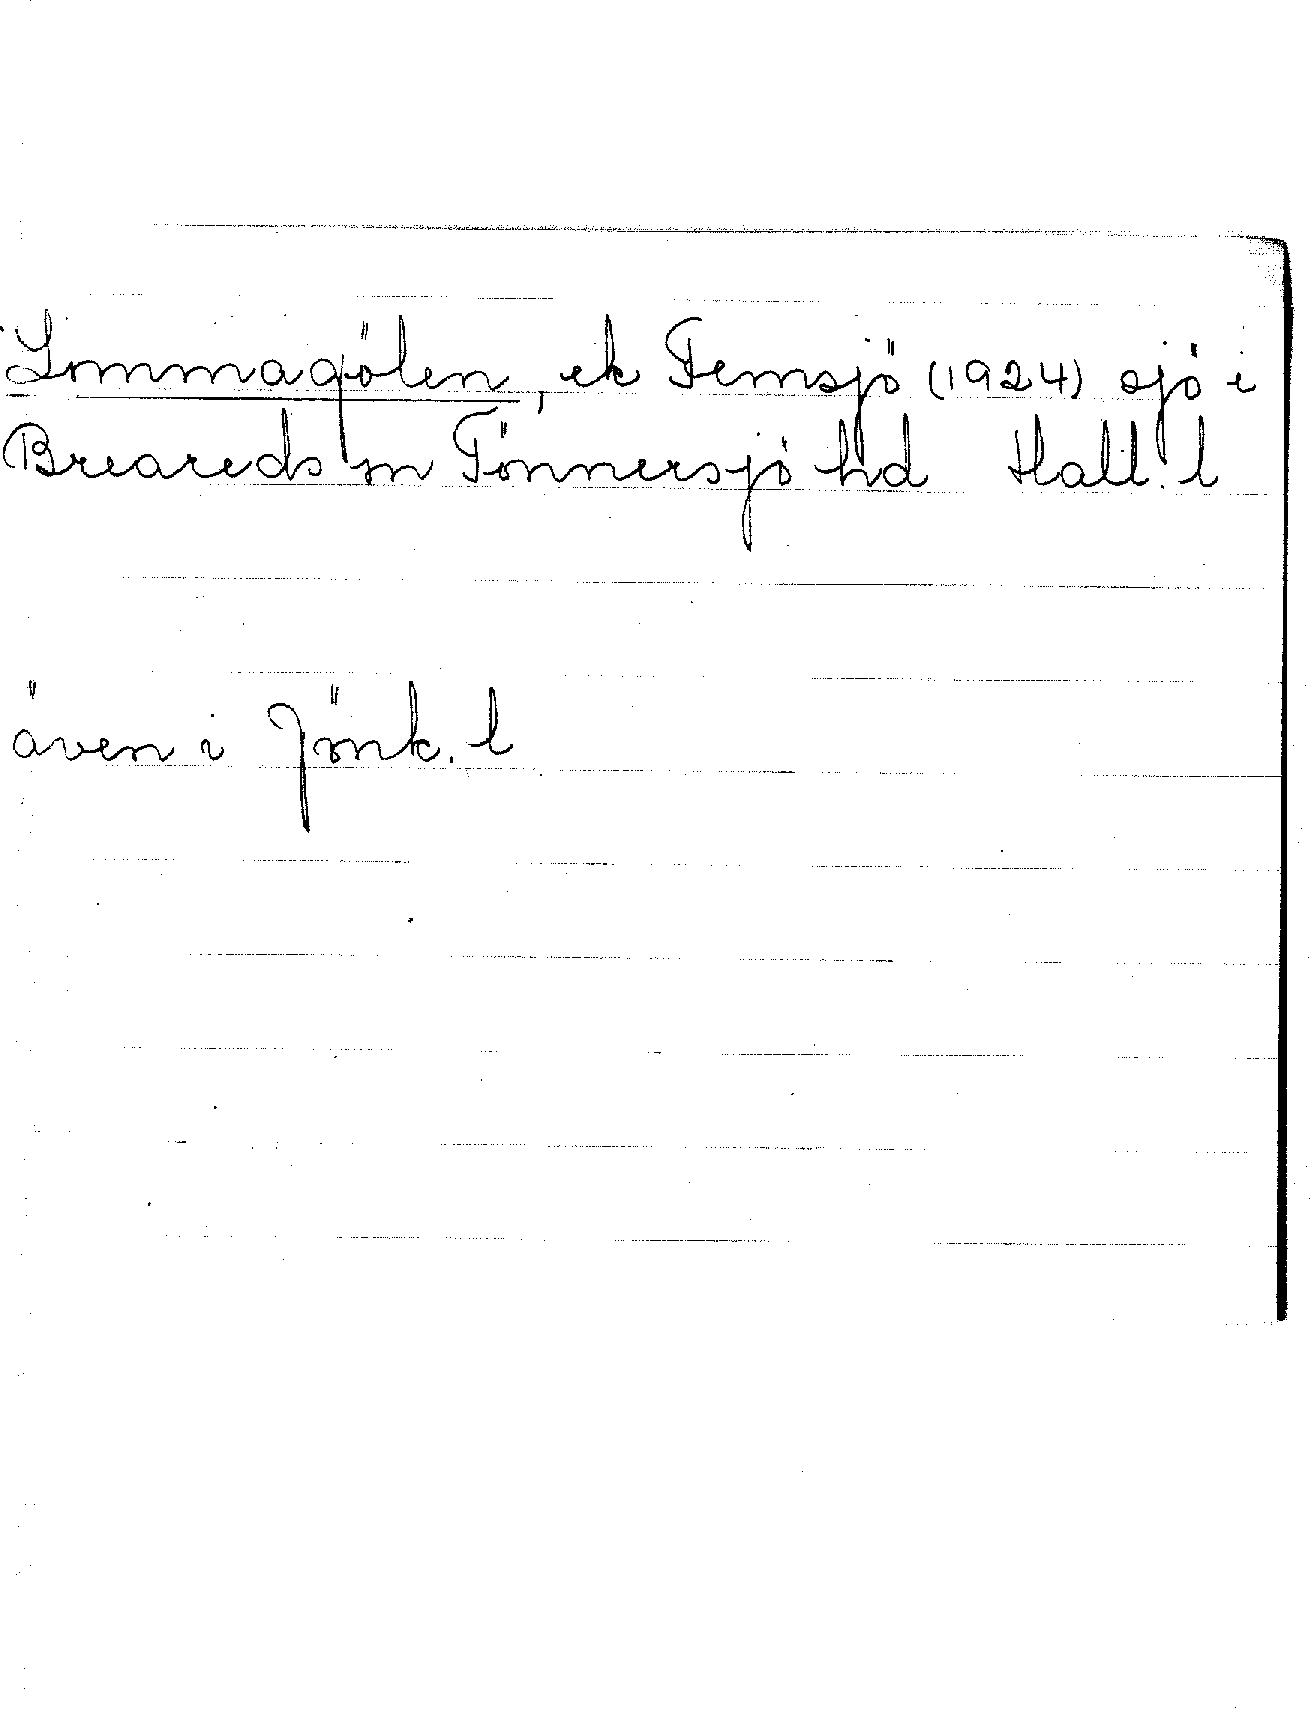 Lommagölen, ek Femsjö (1924) sjö i
Breareds sn Tönnersjö hd Hall. l
även i Jönk. l